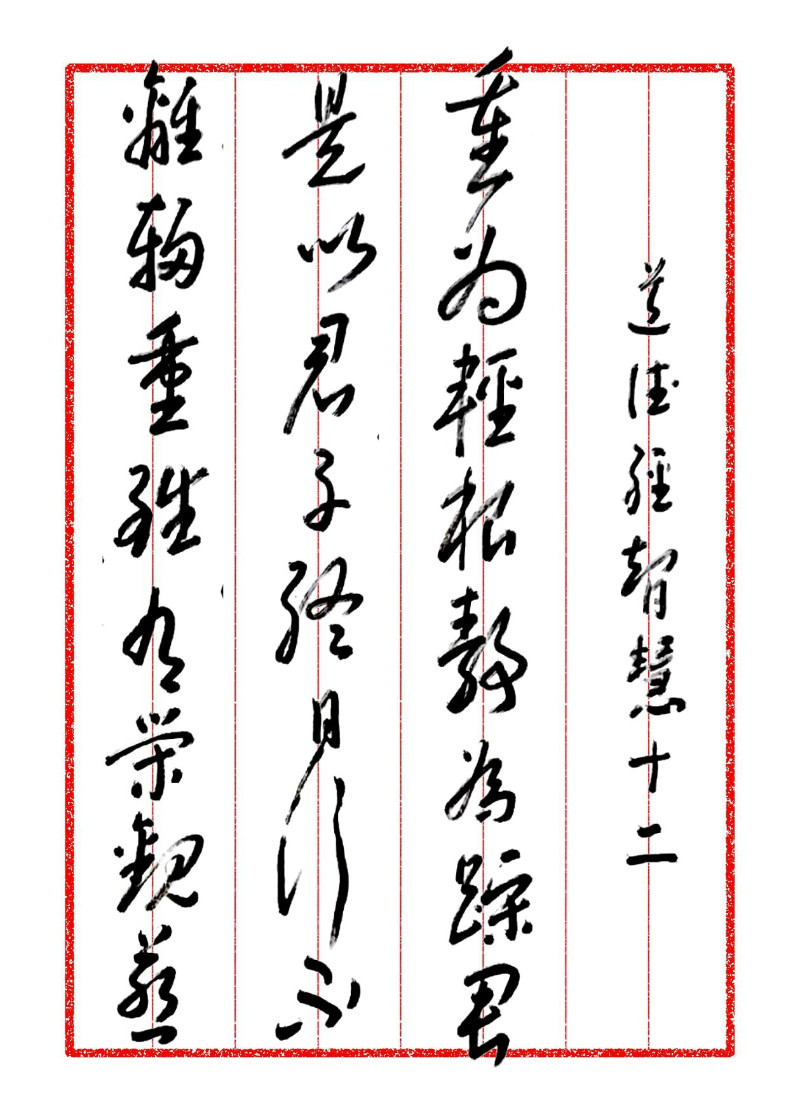 道德经智慧十二
重为輕根静為躁君
是以君子终日行不
離辎重雖有荣觀燕